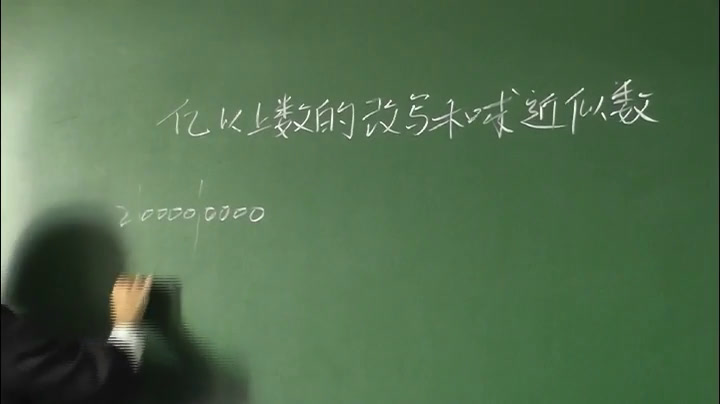 亿以上数的改写和求近似数
200000000